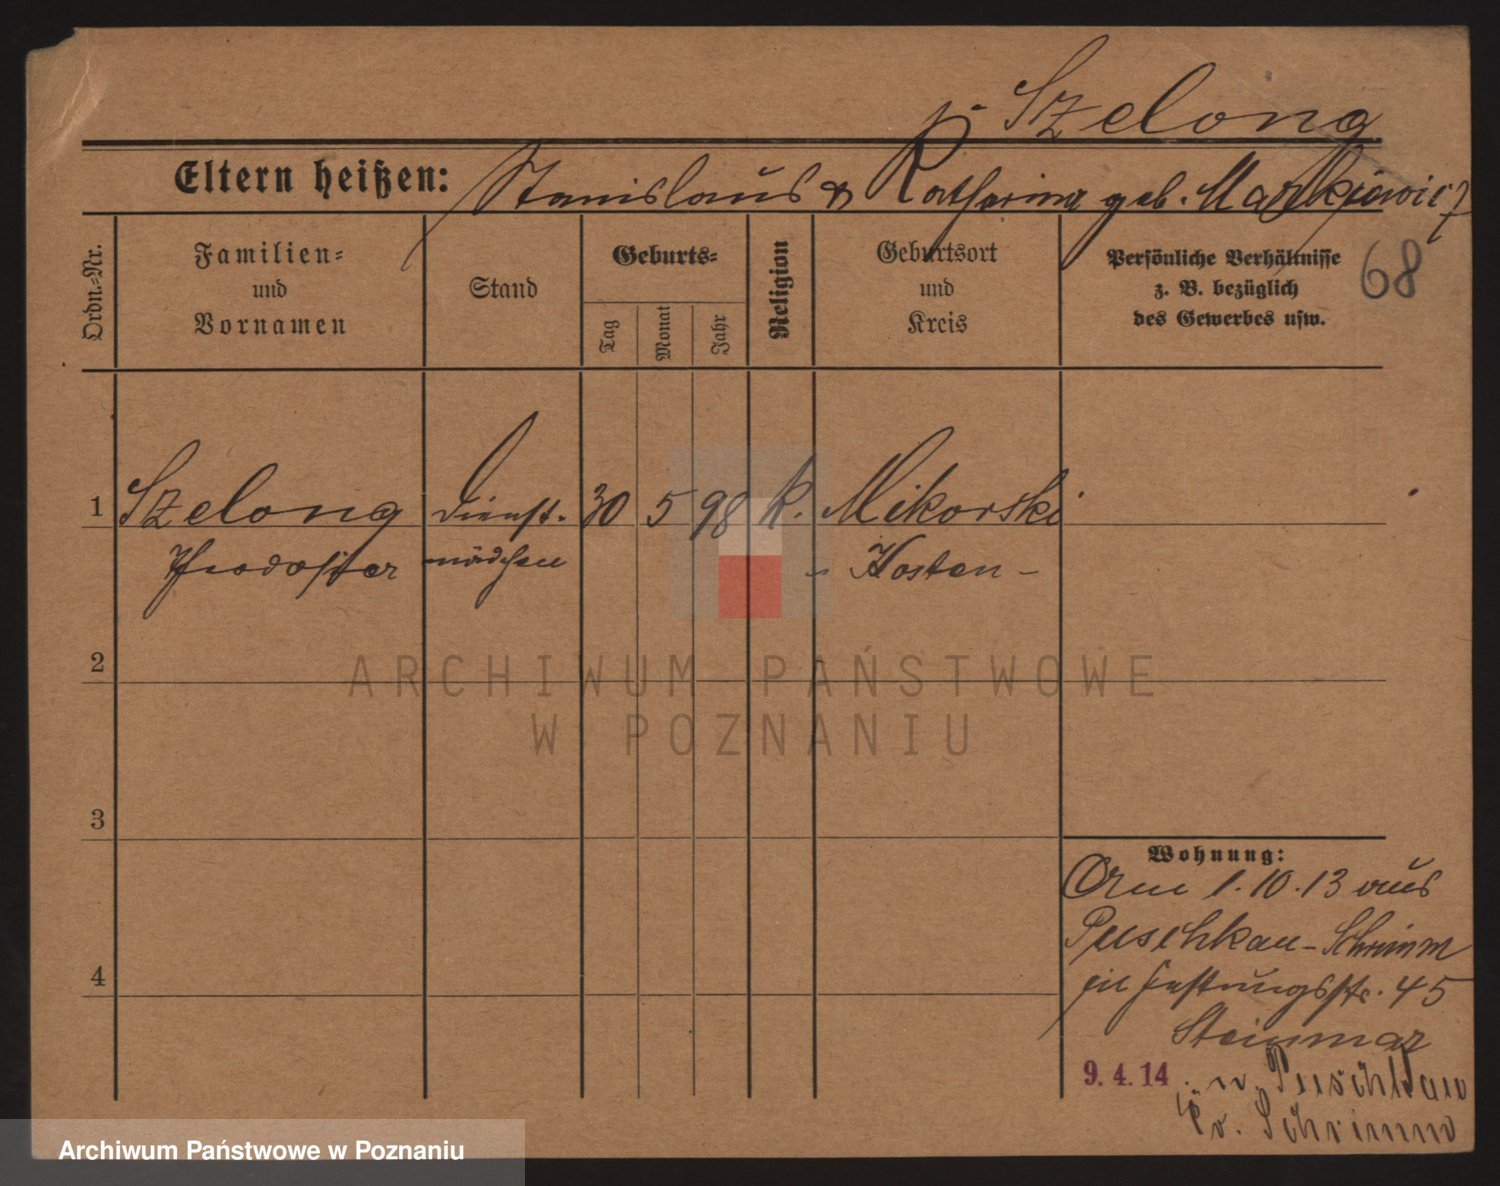 Szelong
Eltern heißen: Stanislaus & Katharina geb. Markiewicz
Ordn.-Nr.
Familien-
und
Vornamen
Stand
Geburts-
Tag
Monat
Jahr
Religion
Geburtsort
und
Kreis
Persönliche Verhältnisse
z. B. bezüglich
des Gewerbes usw.
68
1 Szelong Dienst- 30 5 98 k. Mikorski
mädchen - Kosten -
2
3
4
ARCHIWUM PAŃSTWOWE
W POZNANIU
Wohnung:
1.10.13 aus
Puschkau - Schrimm
Festungsstr. 45
Steinmar
9. 4. 14 n. Puschkau
Schrimm
Archiwum Państwowe w Poznaniu